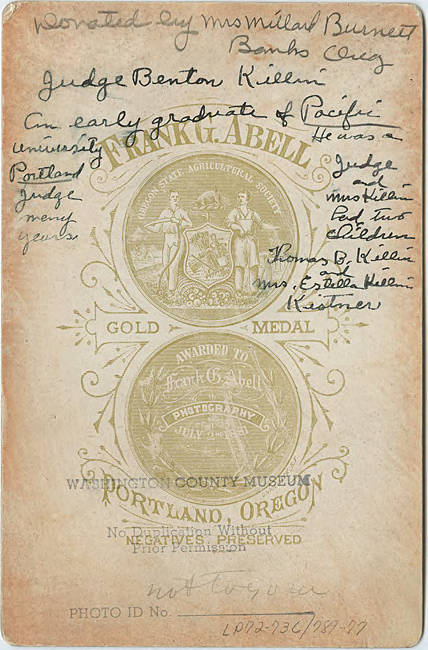 Donated by Mrs Millard Burnett
Banks Oreg
Judge Benton Killin
An early graduate of Pacific
University
He was a
Portland
Judge
meny
years
Judge
and
Mrs Killin
had two
children
Thomas B. Killin
and
Mrs. Estella Killin
Kistner
FRANK G. ABELL
OREGON STATE AGRICULTURAL SOCIETY
GOLD MEDAL
AWARDED TO
Frank G. Abell
PHOTOGRAPHY
JULY 2ND 1881
WASHINGTON COUNTY MUSEUM
PORTLAND, OREGON
No Duplication Without
Prior Permission
NEGATIVES PRESERVED
PHOTO ID No.
LP72-736/787-77